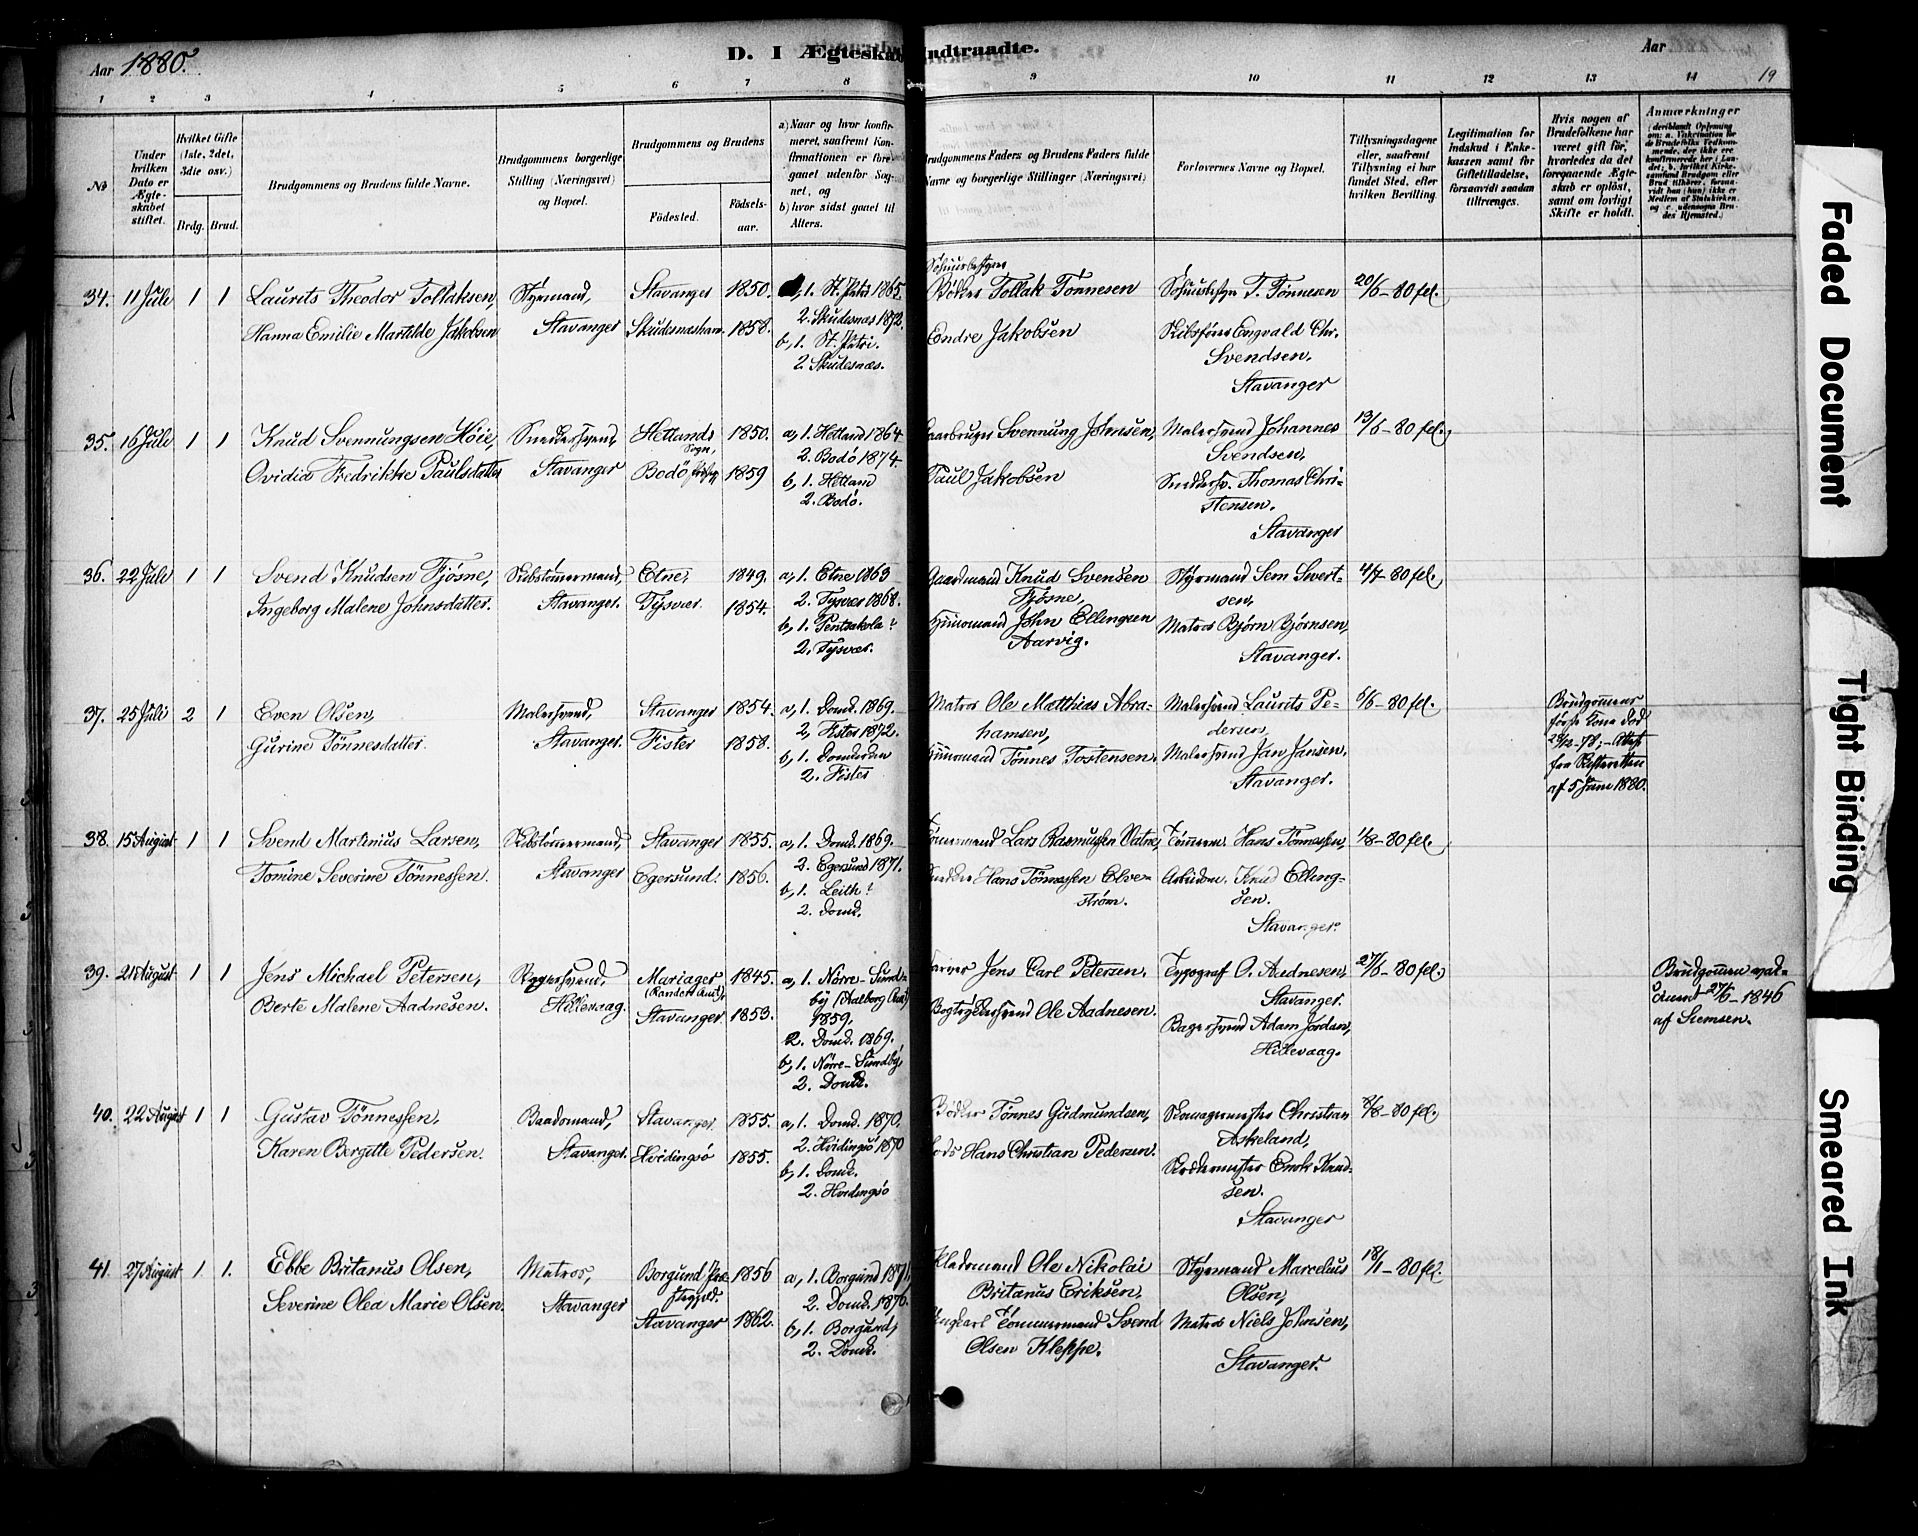 Aar 1880.
D. I Ægteskab Indtraadte.
Aar
19
1 2 3 4 5 6 7 8 9 10 11 12 13 14
No
Under hvilken Dato er Ægteskabet stiftet.
Hvilket Gifte (1ste, 2det, 3die osv.)
Brdg. Brud.
Brudgommens og Brudens fulde Navne.
Brudgommens borgerlige Stilling (Næringsvei) og Bopæl.
Brudgommens og Brudens
Fødested.
Fødselsaar.
a) Naar og hvor konfirmeret, saafremt Konfirmationen er foregaaet udenfor Sognet, og
b) hvor sidst gaaet til Alters.
Brudgommens Faders og Brudens Faders fulde Navne og borgerlige Stillinger (Næringsvei)
Forlovernes Navne og Bopæl.
Tillysningsdagene eller, saafremt Tillysning ei har fundet Sted, efter hvilken Bevilling.
Legitimation for Indskud i Enkekassen samt for Giftetilladelse, forsaavidt saadan tiltrænges.
Hvis nogen af Brudefolkene har været gift før, hvorledes da det foregaaende Ægteskab er opløst, samt om lovligt Skifte er holdt.
Anmærkninger
34. 11 Juli 1 1
Laurits Theodor Tollaksen,
Hanna Emilie Martilde Jakobsen
Styrmand,
Stavanger
Stavanger 1850.
Skudesneshavn. 1858.
a, 1. St. Petri 1865.
2. Skudesnæs 1872.
b, 1. St. Petri.
2. Skudesnæs.
Bødker Tollak Tönnesen
Endre Jakobsen
T. Tönnesen
Skibsfører Engvald Chr.
Svendsen.
Stavanger
20/6-80 fel.
35. 16 Juli 1 1
Knud Svennungsen Höie,
Ovidia Fredrikke Paulsdatter
Snedkersvend,
Stavanger
Hetlands Sogn, 1850.
Bodö 1859
a, 1. Hetland 1864
2. Bodö 1874.
b, 1. Hetland
2. Bodö.
Gaardbruger Svennung Johnsen,
Paul Jakobsen
Malersvend Johannes
Svendsen,
Snedkersv. Thomas Chri-
stensen.
Stavanger
13/6-80 fel.
36. 22 Juli 1 1
Svend Knudsen Fjösne,
Ingeborg Malene Johnsdatter.
Skibstömmermand,
Stavanger.
Etne, 1849.
Tysvær. 1854.
a, 1. Etne 1863
2. Tysvær 1868.
b, 1. Pentsakola?
2. Tysvær.
Gaardmand Knud Svensen
Fjösne,
Huusmand John Ellingsen
Aarvig.
Styrmand Sem Sivert-
sen,
Matros Bjørn Bjørnsen,
Stavanger.
4/7-80 fel.
37. 25 Juli 2 1
Even Olsen,
Gurine Tönnesdatter.
Malersvend,
Stavanger.
Stavanger 1854.
Fister 1858.
a, 1. Domk. 1869.
2, Fister 1872.
b, 1. Domkirken
2. Fister
Matros Ole Matthias Abra-
hamsen,
Huusmand Tönnes Tostensen.
Malersvend Laurits Pe-
dersen,
Malersvend Jan Jansen,
Stavanger.
6/6-80 fel.
Brudgommens
første Kone død
23/12-78; - Attest
fra Skifteretten
af 5 Juni 1880.
38. 15 August 1 1
Svend Martinius Larsen,
Tomine Severine Tönnessen.
Skibstömmermand,
Stavanger
Stavanger 1855.
Egersund. 1856.
a, 1. Domk. 1869.
2. Egersund 1871.
b, 1. Leith?
2. Domk.
Tömmermand Lars Rasmussen Vatne,
Snedker Hans Tönnessen Elve-
ström.
Tömmerm. Hans Tönnessen,
Arbeidsm. Knud Elling-
sen.
Stavanger.
1/8-80 fel.
39. 21 August 1 1
Jens Michael Petersen,
Berte Malene Aadnesen.
Bagersvend,
Hillevaag.
Mariager 1845.
(Randers Amt),
Stavanger 1853.
a, 1. Nörre-Sund-
by (Aalborg Amt)
1859,
2. Domk. 1869.
b, 1. Nörre-Sundby,
2. Domk.
Farver Jens Carl Petersen.
Bogtrykkersvend Ole Aadnesen.
Typograf O. Aadnesen,
Stavanger.
Bagersvend Adam Jordan,
Hillevaag.
27/6-80 fel.
Brudgommen vac-
cineret 27/6-1846
af Siemsen.
40. 22 August 1 1
Gustav Tönnessen,
Karen Bergitte Pedersen.
Baadsmand,
Stavanger.
Stavanger. 1855.
Hvidingsö 1855.
a, 1. Domk. 1870.
2. Hvidingsö 1870
b, 1. Domk.
2. Hvidingsö
Bødker Tönnes Gudmundsen,
Lods Hans Christian Pedersen.
Skomagermester Christian
Askeland,
Snedkermester Enok Knud-
sen.
Stavanger
8/8-80 fel.
41 27 August 1 1.
Ebbe Britanus Olsen,
Severine Olea Marie Olsen.
Matros,
Stavanger
Borgund Præ- 1856
stegjeld.
Stavanger 1862.
a, 1. Borgund 1871,
2. Domk. 1876.
b, 1. Borgund,
2. Domk.
Pladsmand Ole Nikolai
Britanus Eriksen,
Ungkarl Tömmermand Svend
Olsen Kleppe.
Styrmand Marcelius
Olsen,
Matros Niels Johnsen,
Stavanger.
18/1-80 fel.
Faded Document
Tight Binding
Smeared Ink